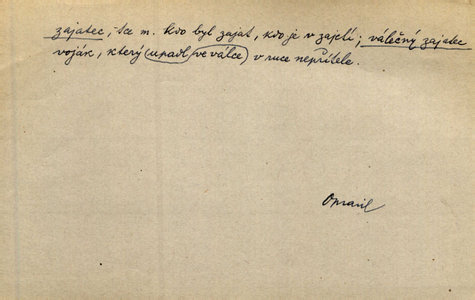 zajatec, -tce m. kdo byl zajat, kdo je v zajetí; válečný zajatec
voják, který upadl ve válce v ruce nepřítele.
Opravil